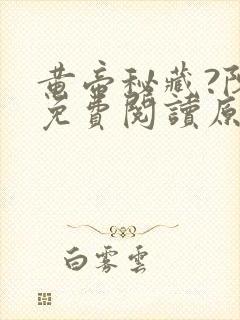 黄帝秘藏?阴
免費閱讀原
白雾雲